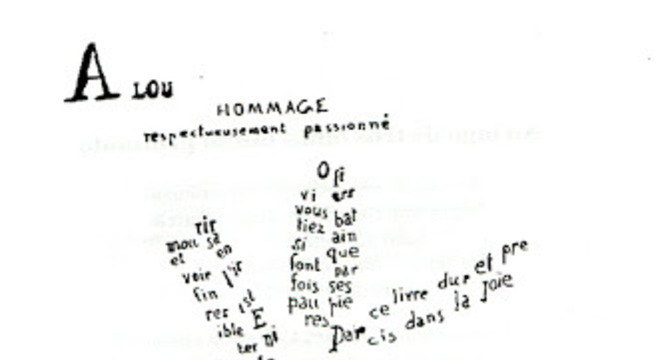 A LOU
HOMMAGE
respectueusement passionné
rir
mou sa
et en
voir l'ir
fin
res ist
ible E
ter ni
O fi
vi ers
vous bat
tiez ain
si que
font par
fois ses
pau pie
res
Par ce livre dur et pre
cis dans la joie